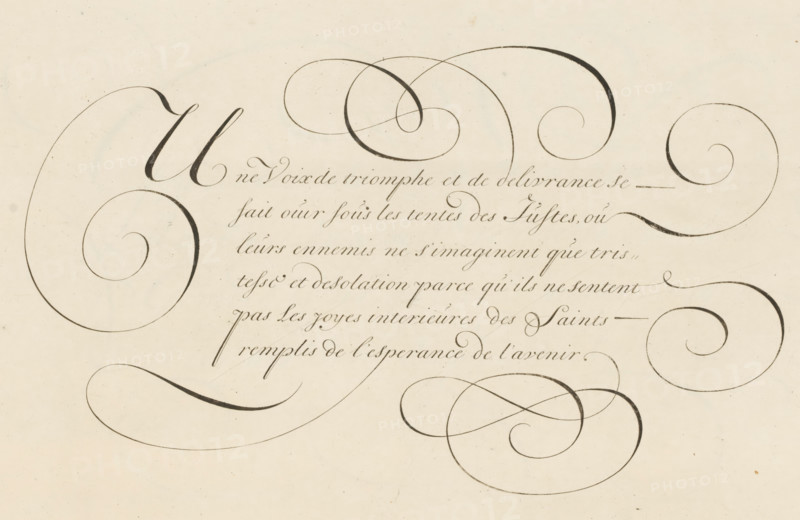 Une Voix de triomphe et de delivrance se
fait ouir sous les tentes des Justes, ou
leurs ennemis ne s'imaginent que tris„
tesse et desolation parce qu'ils ne sentent
pas Les joyes interieures des Saints
remplis de l'esperance de l'avenir